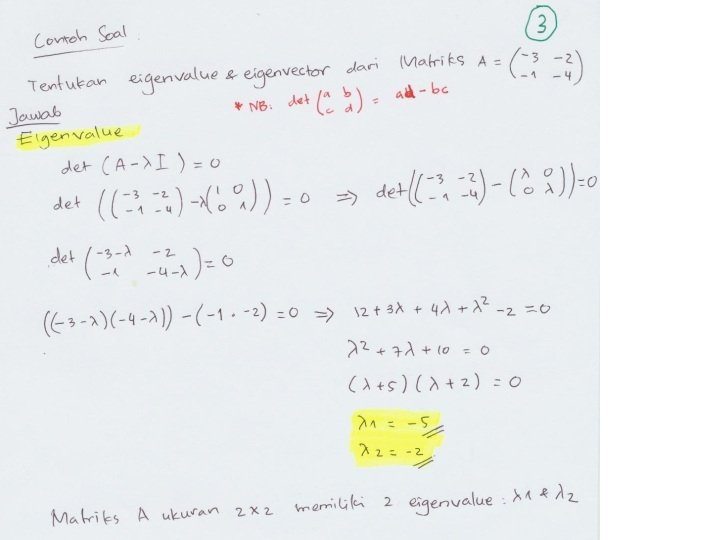 3
Contoh Soal.
Tentukan eigenvalue & eigenvector dari Matriks A = (-3 -2
-1 -4)
* NB: det (a b
c d) = ad - bc
Jawab
Eigenvalue
det (A - λ I) = 0
det ((-3 -2
-1 -4) - λ(1 0
0 1)) = 0 ⇒ det((-3 -2
-1 -4) - (λ 0
0 λ)) = 0
det (-3-λ -2
-1 -4-λ) = 0
((-3-λ)(-4-λ)) - (-1 . -2) = 0 ⇒ 12 + 3λ + 4λ + λ² - 2 = 0
λ² + 7λ + 10 = 0
(λ+5) (λ+2) = 0
λ1 = -5
λ2 = -2
Matriks A ukuran 2x2 memiliki 2 eigenvalue : λ1 & λ2